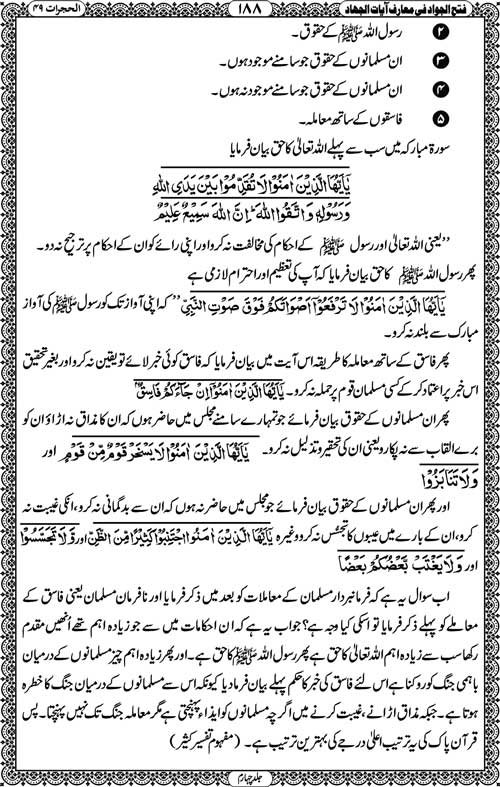 فتح الجواد فی معارف آیات الجهاد ۱۸۸ الحجرات ۴۹
۲ رسول اللہ ﷺ کے حقوق۔
۳ ان مسلمانوں کے حقوق جو سامنے موجود ہوں۔
۴ ان مسلمانوں کے حقوق جو سامنے موجود نہ ہوں۔
۵ فاسقوں کے ساتھ معاملہ۔
سورۃ مبارکہ میں سب سے پہلے اللہ تعالیٰ کا حق بیان فرمایا
يٰۤاَيُّهَا الَّذِيْنَ اٰمَنُوْا لَا تُقَدِّمُوْا بَيْنَ يَدَىِ اللّٰهِ
وَرَسُوْلِهٖ وَاتَّقُوا اللّٰهَ ؕ اِنَّ اللّٰهَ سَمِيْعٌ عَلِيْمٌ
’’یعنی اللہ تعالیٰ اور رسول ﷺ کے احکام کی مخالفت نہ کرو اور اپنی رائے کو ان کے احکام پر ترجیح نہ دو۔
پھر رسول اللہ ﷺ کا حق بیان فرمایا کہ آپ کی تعظیم اور احترام لازمی ہے
يٰۤاَيُّهَا الَّذِيْنَ اٰمَنُوْا لَا تَرْفَعُوْۤا اَصْوَاتَكُمْ فَوْقَ صَوْتِ النَّبِيِّ ’’ کہ اپنی آواز تک کو رسول ﷺ کی آواز
مبارک سے بلند نہ کرو۔
پھر فاسق کے ساتھ معاملہ کا طریقہ اس آیت میں بیان فرمایا کہ فاسق کوئی خبر لائے تو یقین نہ کرو اور بغیر تحقیق
اس خبر پر اعتماد کر کے کسی مسلمان قوم پر حملہ نہ کرو۔ يٰۤاَيُّهَا الَّذِيْنَ اٰمَنُوْۤا اِنْ جَآءَكُمْ فَاسِقٌ
پھر ان مسلمانوں کے حقوق بیان فرمائے جو تمہارے سامنے مجلس میں حاضر ہوں کہ ان کا مذاق نہ اڑاؤ ان کو
برے القاب سے نہ پکارو یعنی ان کی تحقیر و تذلیل نہ کرو۔ يٰۤاَيُّهَا الَّذِيْنَ اٰمَنُوْا لَا يَسْخَرْ قَوْمٌ مِّنْ قَوْمٍ اور
وَلَا تَنَابَزُوْا
اور پھر ان مسلمانوں کے حقوق بیان فرمائے جو مجلس میں حاضر نہ ہوں کہ ان سے بدگمانی نہ کرو، انکی غیبت نہ
کرو، ان کے بارے میں عیبوں کا تجسس نہ کرو وغیرہ يٰۤاَيُّهَا الَّذِيْنَ اٰمَنُوا اجْتَنِبُوْا كَثِيْرًا مِّنَ الظَّنِّ اور وَّلَا تَجَسَّسُوْا
اور وَلَا يَغْتَبْ بَّعْضُكُمْ بَعْضًا
اب سوال یہ ہے کہ فرمانبردار مسلمان کے معاملات کو بعد میں ذکر فرمایا اور نافرمان مسلمان یعنی فاسق کے
معاملے کو پہلے ذکر فرمایا تو اسکی کیا وجہ ہے؟ جواب یہ ہے کہ ان احکامات میں سے جو زیادہ اہم تھے انھیں مقدم
رکھا سب سے زیادہ اہم اللہ تعالیٰ کا حق ہے پھر رسول اللہ ﷺ کا حق ہے۔ اور پھر زیادہ اہم چیز مسلمانوں کے درمیان
باہمی جنگ کو روکنا ہے اس لئے فاسق کی خبر کا حکم پہلے بیان فرمادیا کیونکہ اس سے مسلمانوں کے درمیان جنگ کا خطرہ
ہوتا ہے۔ جبکہ مذاق اڑانے، غیبت کرنے میں اگرچہ مسلمانوں کو ایذاء پہنچتی ہے مگر معاملہ جنگ تک نہیں پہنچتا۔ پس
قرآن پاک کی یہ ترتیب اعلیٰ درجے کی بہترین ترتیب ہے۔ (مفہوم تفسیر کثیر)
جلد چہارم